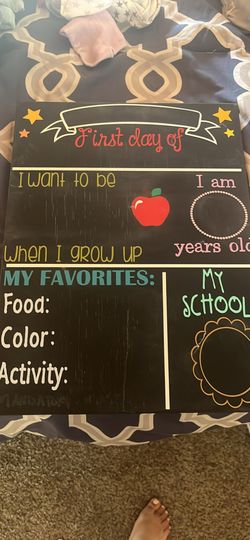 First day of
I want to be
I am
years old
when I grow up
MY FAVORITES:
Food:
Color:
Activity:
MY
SCHOOL